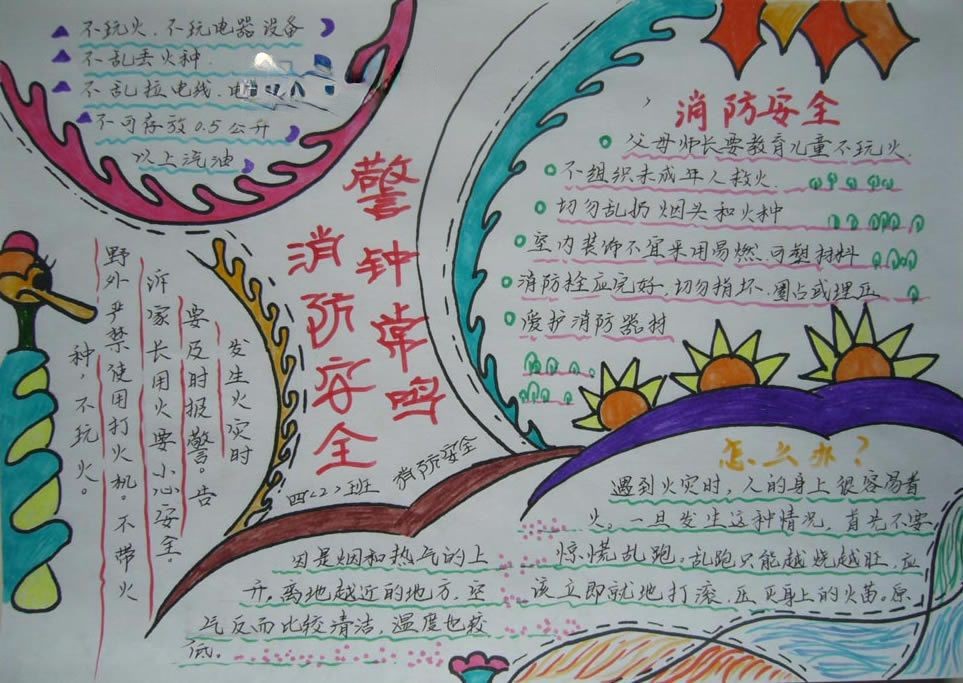 不玩火、不玩电器设备
不乱丢火种.
不乱拉电线、电
不可存放0.5公升
以上汽油
警钟常鸣
消防安全
消防安全
父母师长要教育儿童不玩火.
不组织未成年人救火.
切勿乱扔烟头和火种
室内装饰不宜采用易燃、可塑材料
消防栓应完好,切勿损坏、圈占或埋压
爱护消防器材
发生火灾时
要及时报警。告
诉家长用火要小心安全。
野外严禁使用打火机。不带火
种,不玩火。
四〈2〉班
消防安全
怎么办?
遇到火灾时,人的身上很容易着
火。一旦发生这种情况,首先不要
惊慌乱跑。乱跑只能越烧越旺,应
该立即就地打滚,压灭身上的火苗。原
因是烟和热气的上
升,离地越近的地方,空
气反而比较清洁,温度也较
低。